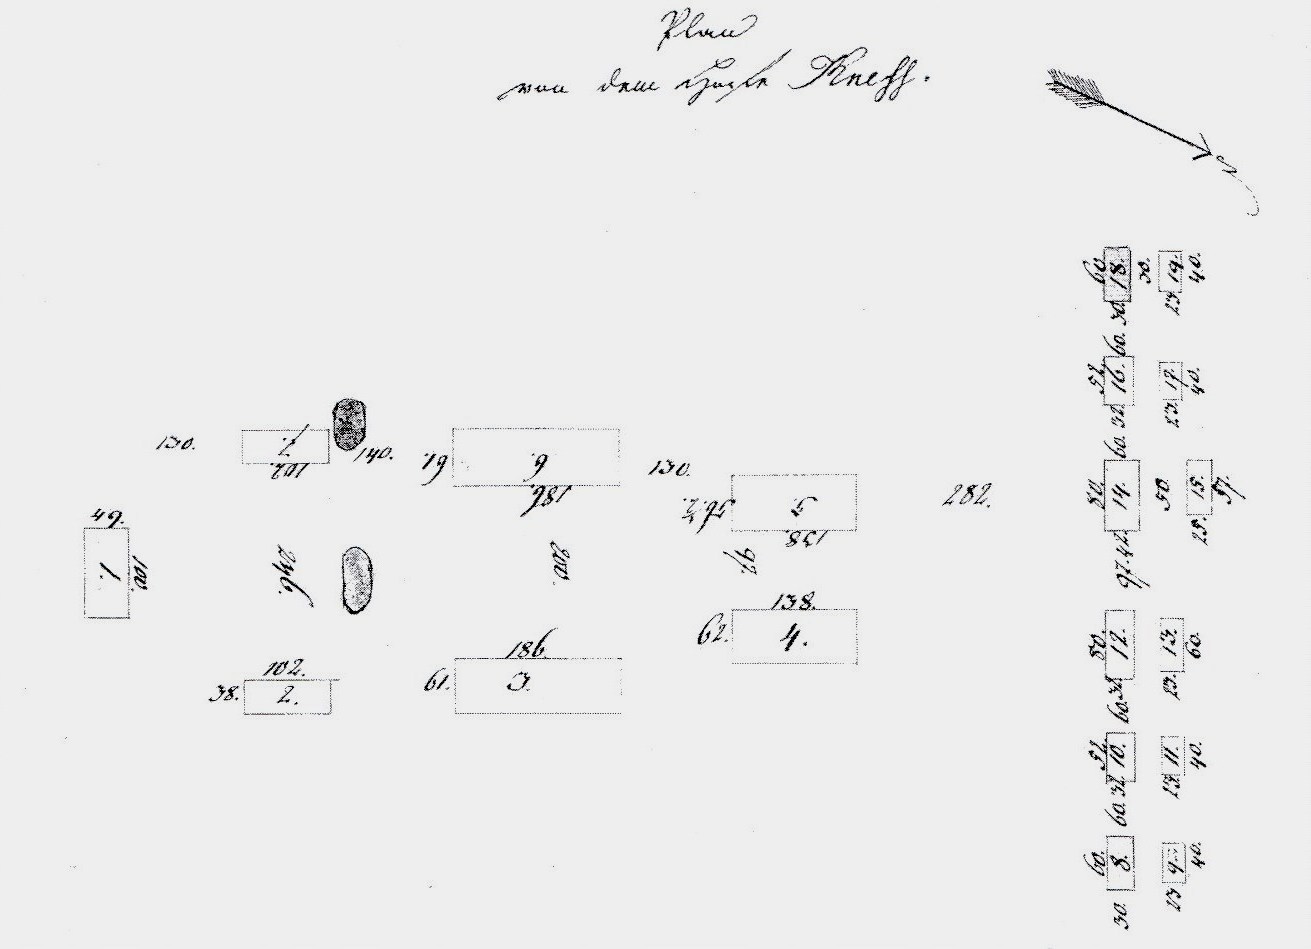 Plan
von dem Hofe Kness.
N
60. 18. 30. 19. 40.
30. 23.
60.
52. 16. 17. 40.
32. 23.
60.
130. 7. 140. 61. 6. 130.
102. 186.
5. 282. 80. 14. 50. 15. 57.
138. 42. 25.
49. 97.
1. 100. 246. 200. 97.
138.
62. 4. 80. 12. 13. 60.
186. 32. 23.
102. 61. 3. 60.
38. 2.
52. 10. 11. 40.
32. 23.
60.
60. 8. 9. 40.
30. 23